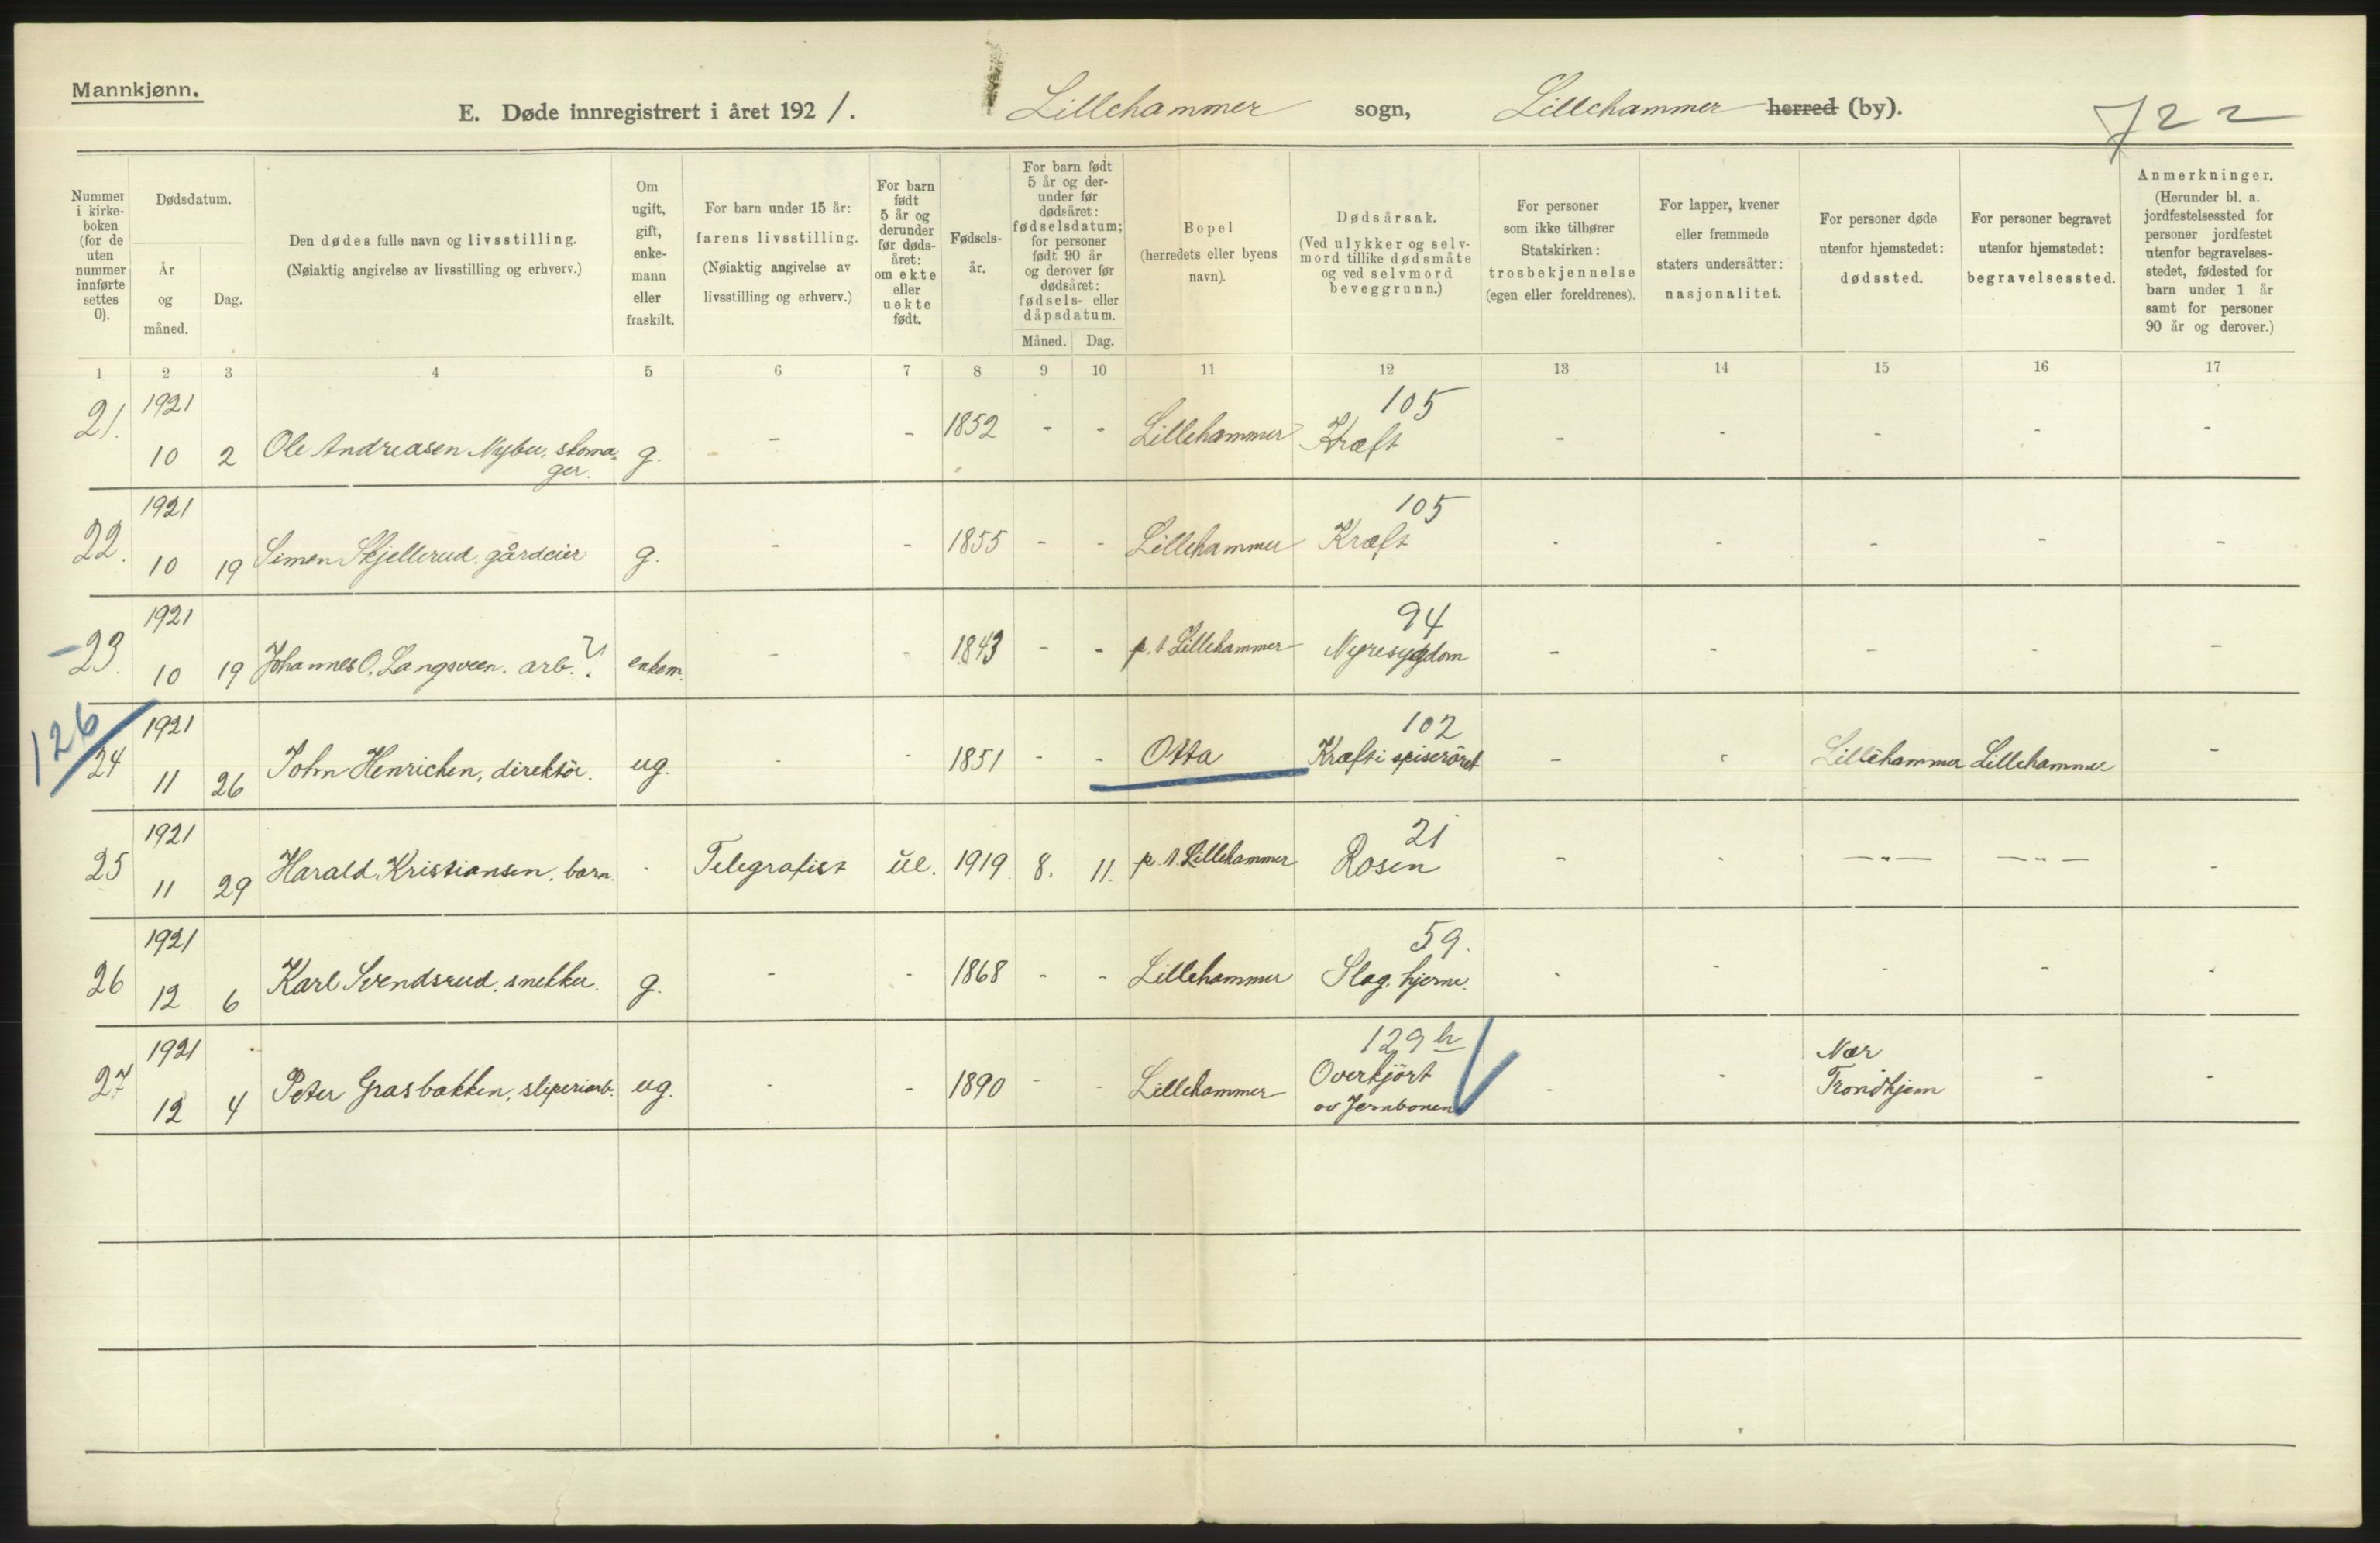 Mannkjønn.
E. Døde innregistrert i året 1921. Lillehammer sogn, Lillehammer herred (by). 722
Nummer i kirke- boken (for de uten nummer innførte settes 0).
Dødsdatum.
År og måned.
Dag.
Den dødes fulle navn og livsstilling.
(Nøiaktig angivelse av livsstilling og erhverv.)
Om ugift, gift, enke- mann eller fraskilt.
For barn under 15 år: farens livsstilling.
(Nøiaktig angivelse av livsstilling og erhverv.)
For barn født 5 år og derunder før døds- året: om ekte eller uekte født.
Fødsels- år.
For barn født 5 år og der- under før dødsåret: fødselsdatum; for personer født 90 år og derover før dødsåret: fødsels- eller dåpsdatum.
Måned. Dag.
Bopel
(herredets eller byens navn).
Dødsårsak.
(Ved ulykker og selv- mord tillike dødsmåte og ved selvmord beveggrunn.)
For personer som ikke tilhører Statskirken: trosbekjennelse (egen eller foreldrenes).
For lapper, kvener eller fremmede staters undersåtter: nasjonalitet.
For personer døde utenfor hjemstedet: dødssted.
For personer begravet utenfor hjemstedet: begravelsessted.
Anmerkninger.
(Herunder bl. a. jordfestelsessted for personer jordfestet utenfor begravelses- stedet, fødested for barn under 1 år samt for personer 90 år og derover.)
1 2 3 4 5 6 7 8 9 10 11 12 13 14 15 16 17
1921 105
21. 10 2 Ole Andreasen Nybu, skoma- g. - - 1852 - - Lillehammer Kræft - - - - -
ger.
1921 105
22. 10 19 Simen Skjellerud. gårdeier g. - - 1855 - - Lillehammer Kræft - - - - -
1921 94
-23. 10 19 Johannes O. Langsveen. arb.? enkem. - - 1843 - - p. t Lillehammer Nyresygdom - - - - -
126 1921 102
24 11 26 John Henrichen, direktör. ug. - - 1851 - - Otta Kræft i spiseröret - - Lillehammer Lillehammer -
1921 21
25 11 29 Harald Kristiansen, barn. - Telegrafist ue. 1919 8. 11. p. t. Lillehammer Rosen - - —"— —"— -
1921 59.
26 12 6 Karl Svendsrud. snekker. g. - - 1868 - - Lillehammer Slag. hjerne. - - - - -
1921 129 h
27 12 4 Peter Grasbakken, sliperiarb. ug. - - 1890 - - Lillehammer Overkjört - - Nær - -
av Jernbanen Trondhjem